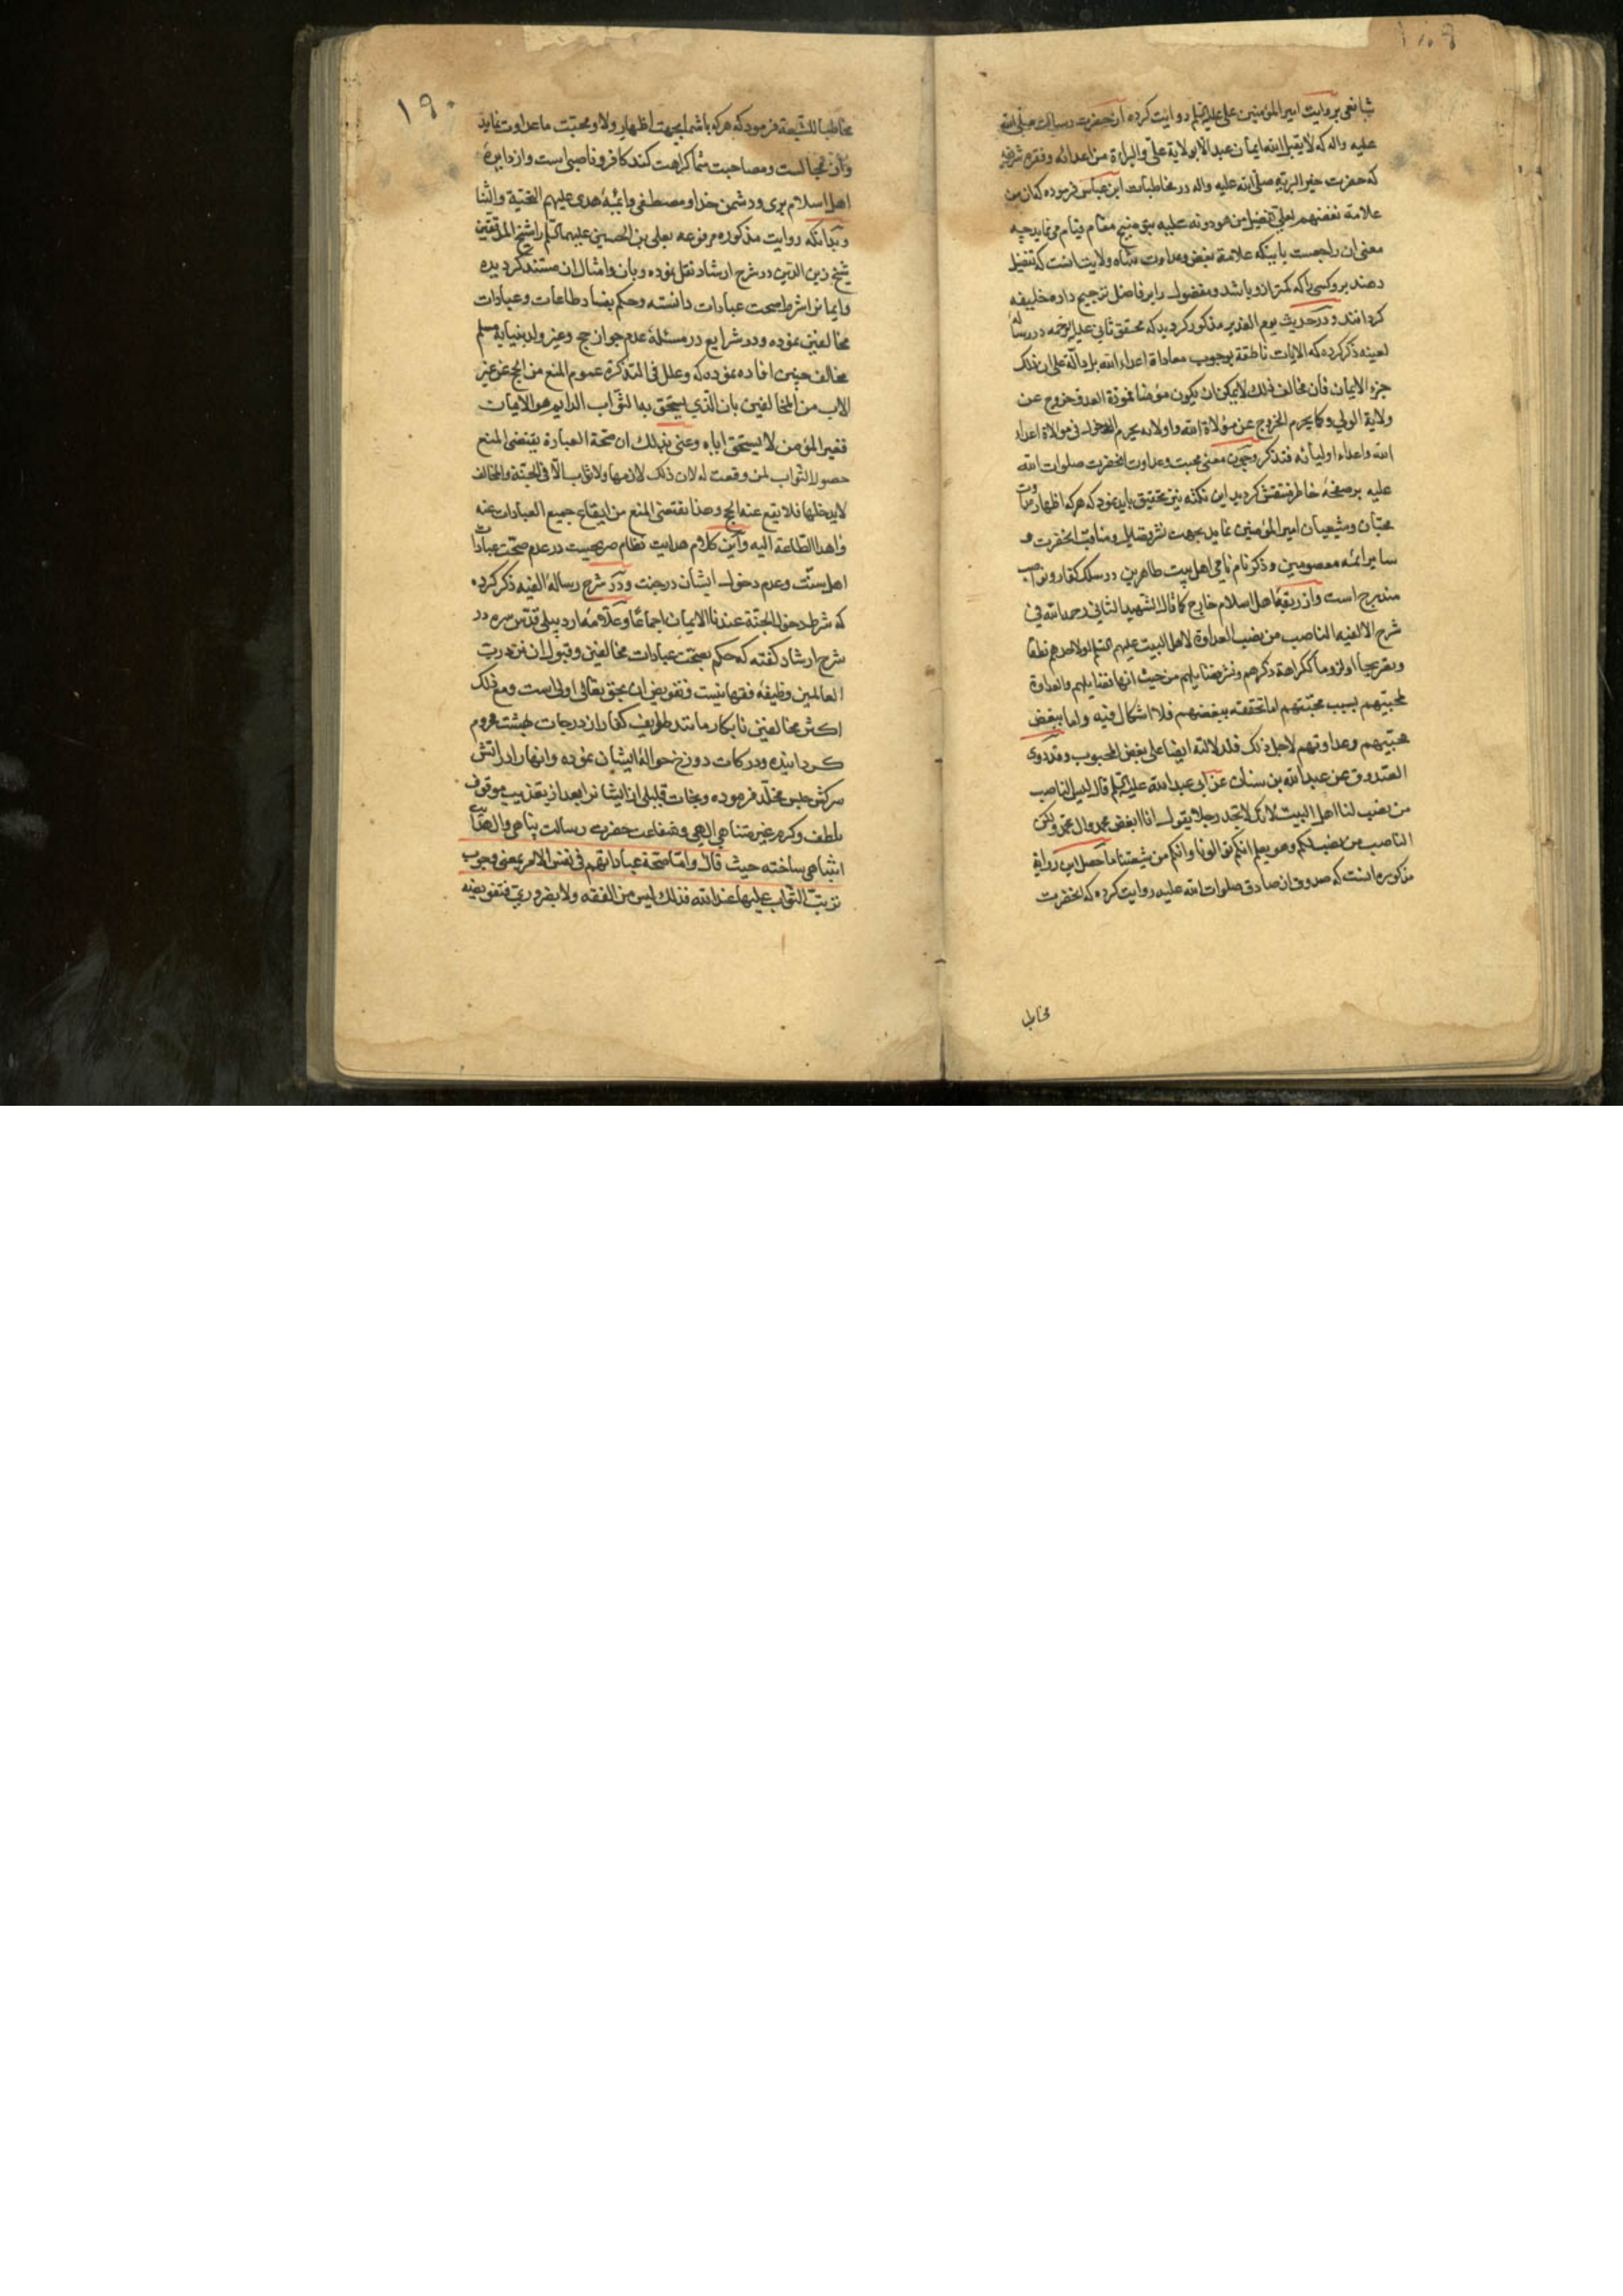 ۱۸۹
شافعی بروایت امیر المؤمنین علی علیه السلم روایت کرده از حضرت رسالت صلی الله
علیه واله که لا یقبل الله ایمان عبد الا بولایة علی والبراءة من اعدائه وفقره شریفه
که حضرت خیر البریه صلی الله علیه واله در مخاطبات ابن عباس فرموده کان من
علامة بغضهم لعلی تفضیل من هو دونه علیه مقام قیام می نماید چه
معنی ان راجعست باینکه علامة بغض وعداوت شاه ولایت انست که تفضیل
دهند برو کسی را که کمتر ازو باشد ومفضول را بر فاضل ترجیح داده خلیفه
کردانند ودر حدیث یوم الغدیر مذکور کردید که محقق ثانی علیه الرحمه در رساله
لعینه ذکر کرده که الایات ناطقة بوجوب معاداة اعداء الله بل دالة علی ان ذلک
جزء الایمان فان مخالف ذلک لا یمکن ان یکون مؤمنا فمودة العدو خروج عن
ولایة الولی وکما یحرم الخروج عن مولاة الله واولیائه یحرم الدخول فی موالاة اعداء
الله واعداء اولیائه فتذکر وچون معنی محبت وعداوت انحضرت صلوات الله
علیه بر صفحهٔ خاطر منتقش کردید این نکته نیز تحقیق باید نمود که هرکه اظهار عداوت
محبّان وشیعیان امیر المؤمنین نماید بجهت نشر فضایل ومناقب انحضرت و
سایر ائمه معصومین وذکر نام نامی اهل بیت طاهرین در سلک کفار ونواصب
مندرج است واز ربقهٔ اهل اسلام خارج کما قال الشهید الثانی رحمه الله فی
شرح الالفیه الناصب من نصب العداوة لاهل البیت علیهم السلم او لاحدهم نطقا
وتصریحا او لزوما ککراهة ذکرهم ونشر فضایلهم من حیث انها فضایلهم والعداوة
لمحبیهم بسبب محبتهم اما تحققه ببغضهم فلا اشکال فیه واما ببغض
محبیهم وعداوتهم لاجل ذلک فلدلالته ایضا علی بغض المحبوب وقد روی
الصدوق عن عبد الله بن سنان عن ابی عبد الله علیه السلم قال لیس الناصب
من نصب لنا اهل البیت لانک لا تجد رجلا یقول انا ابغض محمد وال محمد ولکن
الناصب من نصب لکم وهو یعلم انکم تتوالونا وانکم من شیعتنا ما حصل این روایة
مذکوره انست که صدوق از صادق صلوات الله علیه روایت کرده که انحضرت
مخاطبا
۱۹۰
مخاطبا للشیعة فرمود که هرکه باشما بجهت اظهار ولا ومحبّت ما عداوت نماید
واز مجالست ومصاحبت شما کراهت کند کافر وناصبی است واز دایرهٔ
اهل اسلام بری ودشمن خدا ومصطفی وائمهٔ هدی علیهم التحیة والثنا
وبدانکه روایت مذکوره مرفوعه بعلی بن الحسین علیهما السلم را شیخ المدققین
شیخ زین الدین در شرح ارشاد نقل نموده وبان وامثال ان مستند کردیده
وایمانرا شرط صحت عبادات دانسته وحکم بفساد طاعات وعبادات
مخالفین نموده ودر شرایع در مسئلهٔ عدم جواز حج وغیر ولد بنیابة مسلم
مخالف چنین افاده نموده که وعلل فی التذکرة عموم المنع من الحج عن غیر
الاب من المخالفین بان الذی یستحق به الثواب الدایم هو الایمان
فغیر المؤمن لا یستحق ایاه وعنی بذلک ان صحة العبادة یقتضی المنع
حصول الثواب لمن وقعت له لان ذلک لازمها ولا ثواب الا فی الجنة والمخالف
لا یدخلها فلا یقع عنه الحج وهذا یقتضی المنع من ایقاع جمیع العبادات عنه
واهداء الطاعة الیه واین کلام هدایت نظام صریحست در عدم صحّت عبادات
اهل سنّت وعدم دخول ایشان در جنت ودر شرح رساله الفیه ذکر کرده
که شرط دخول الجنة عندنا الایمان اجماعا وعلامه اردبیلی قدّس سره در
شرح ارشاد کفته که حکم بصحّت عبادات مخالفین وقبول ان نزد رب
العالمین وظیفه فقها نیست وتفویض ان بحق تعالی اولی است ومع ذلک
اکثر مخالفین نابکار مانند طوایف کفار از درجات بهشت محروم
کردانیده ودرکات دوزخ حوالهٔ ایشان نموده وانهارا در اتش
سرکش حبس مخلّد فرموده ونجات قلیلی از ایشانرا بعد از تعذیب موقوف
بلطف وکرم غیر متناهی الهی وشفاعت حضرت رسالت پناهی وال هدایت
انتباهی ساخته حیث قال واما صحة عباداتهم فی نفس الامر بمعنی وجوب
ترتب الثواب علیها عند الله فذلک لیس من الفقه ولا بضروری فتفویضه